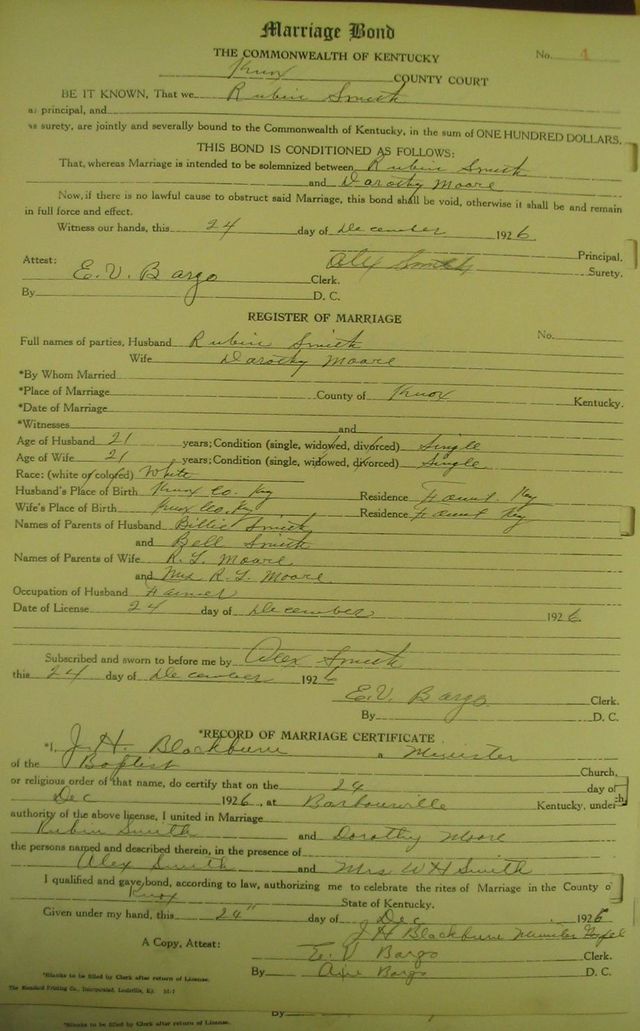 Marriage Bond
THE COMMONWEALTH OF KENTUCKY No. 1
Knox COUNTY COURT
BE IT KNOWN, That we Rubin Smith
as principal, and
as surety, are jointly and severally bound to the Commonwealth of Kentucky, in the sum of ONE HUNDRED DOLLARS.
THIS BOND IS CONDITIONED AS FOLLOWS:
That, whereas Marriage is intended to be solemnized between Rubin Smith
and Dorothy Moore
Now, if there is no lawful cause to obstruct said Marriage, this bond shall be void, otherwise it shall be and remain
in full force and effect.
Witness our hands, this 24 day of December 1926
Principal.
Attest: Alex Smith Surety.
E. V. Bargo Clerk.
By D. C.
REGISTER OF MARRIAGE
Full names of parties, Husband Rubin Smith No.
Wife Dorothy Moore
*By Whom Married
*Place of Marriage County of Knox Kentucky.
*Date of Marriage
*Witnesses and
Age of Husband 21 years; Condition (single, widowed, divorced) Single
Age of Wife 21 years; Condition (single, widowed, divorced) Single
Race: (white or colored) White
Husband's Place of Birth Knox Co. Ky Residence Fount Ky
Wife's Place of Birth Knox Co. Ky. Residence Fount Ky
Names of Parents of Husband Billie Smith
and Bell Smith
Names of Parents of Wife R. L. Moore
and Mrs R. L. Moore
Occupation of Husband Farmer
Date of License 24 day of December 1926.
Subscribed and sworn to before me by Alex Smith
this 24 day of December 1926
E. V. Bargo Clerk.
By D. C.
*RECORD OF MARRIAGE CERTIFICATE
*I, J. H. Blackburn a Minister
of the Baptist Church,
or religious order of that name, do certify that on the 24 day of
Dec 1926, at Barbourville Kentucky, under
authority of the above license, I united in Marriage
Rubin Smith and Dorothy Moore
the persons named and described therein, in the presence of
Alex Smith and Mrs W H Smith
I qualified and gave bond, according to law, authorizing me to celebrate the rites of Marriage in the County o
Knox State of Kentucky.
Given under my hand, this 24" day of Dec 1926
J H Blackburn Minister
A Copy, Attest: E. V Bargo Clerk.
By Bargo D. C.
*Blanks to be filled by Clerk after return of License.
The Standard Printing Co., Incorporated, Louisville, Ky.
By
*Blanks to be filled by Clerk after return of License.